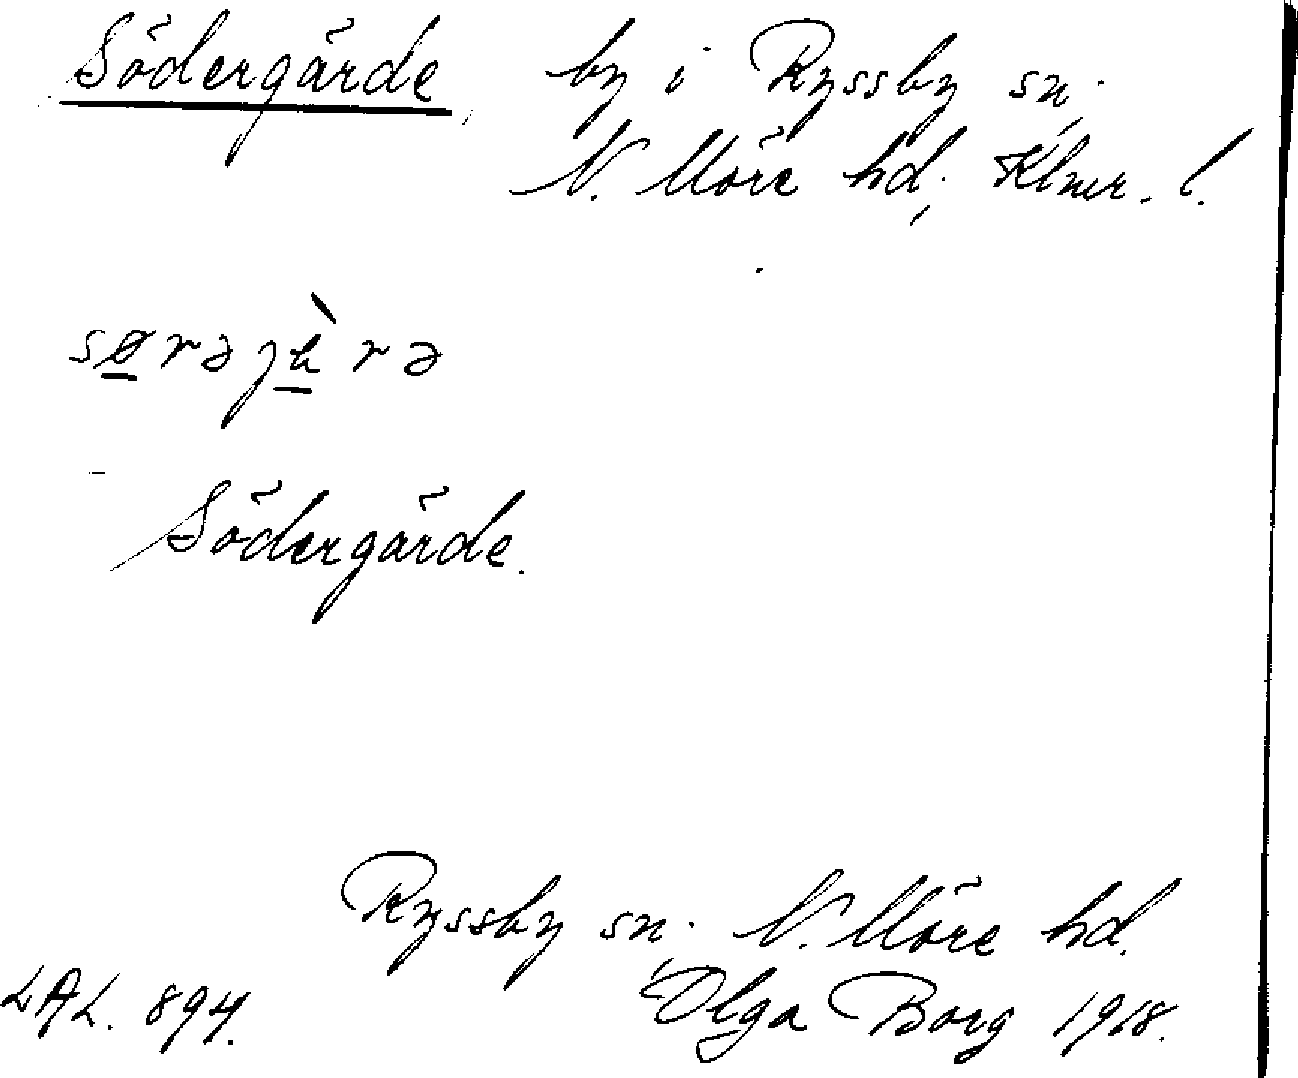 Södergärde, by i Ryssby sn.,
N. Möre hd., Klmr. l.
Södergärde.
Ryssby sn., N. Möre hd.
LAL. 894. Olga Borg 1918.